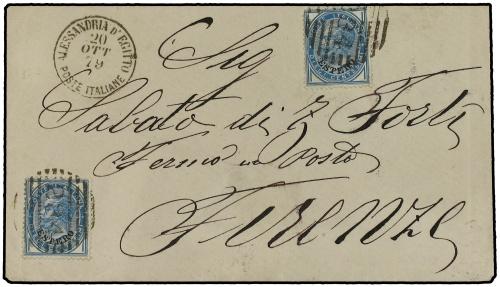 ALESSANDRIA D'EGITTO
20
OTT
79
POSTE ITALIANE
ESTERO
Sig
Sabato di Z Forti
Fermo in Posta
Firenze
ESTERO